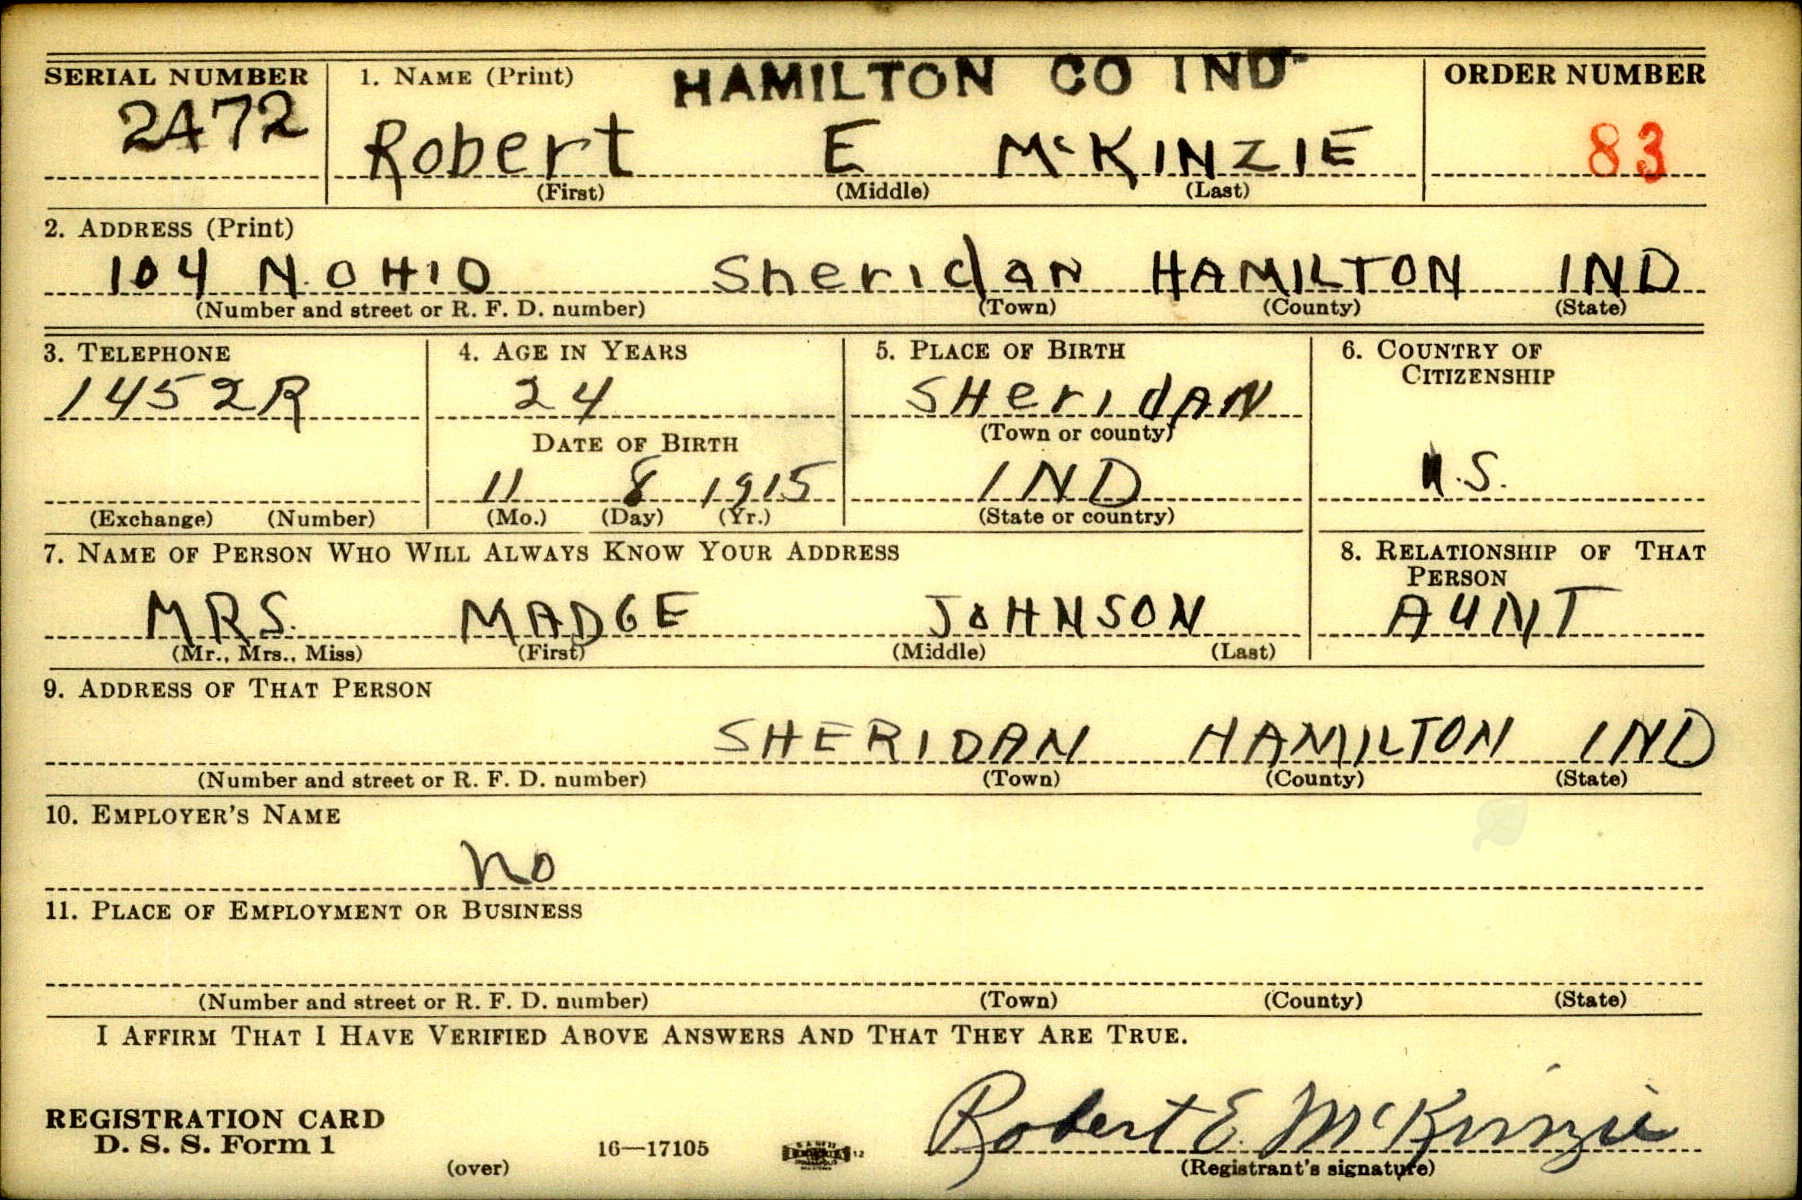 SERIAL NUMBER 1. NAME (Print) HAMILTON CO IND ORDER NUMBER
2472 Robert E McKINZIE 83
(First) (Middle) (Last)
2. ADDRESS (Print)
104 N. OHIO Sheridan HAMILTON IND
(Number and street or R. F. D. number) (Town) (County) (State)
3. TELEPHONE 4. AGE IN YEARS 5. PLACE OF BIRTH 6. COUNTRY OF CITIZENSHIP
1452R 24 SHeridAN
(Town or county)
DATE OF BIRTH
11 8 1915 IND U.S.
(Exchange) (Number) (Mo.) (Day) (Yr.) (State or country)
7. NAME OF PERSON WHO WILL ALWAYS KNOW YOUR ADDRESS 8. RELATIONSHIP OF THAT PERSON
MRS. MADGE JOHNSON AUNT
(Mr., Mrs., Miss) (First) (Middle) (Last)
9. ADDRESS OF THAT PERSON
SHERIDAN HAMILTON IND
(Number and street or R. F. D. number) (Town) (County) (State)
10. EMPLOYER'S NAME
no
11. PLACE OF EMPLOYMENT OR BUSINESS
(Number and street or R. F. D. number) (Town) (County) (State)
I AFFIRM THAT I HAVE VERIFIED ABOVE ANSWERS AND THAT THEY ARE TRUE.
REGISTRATION CARD
D. S. S. Form 1 16—17105 Robert E. McKinzie
(over) (Registrant's signature)